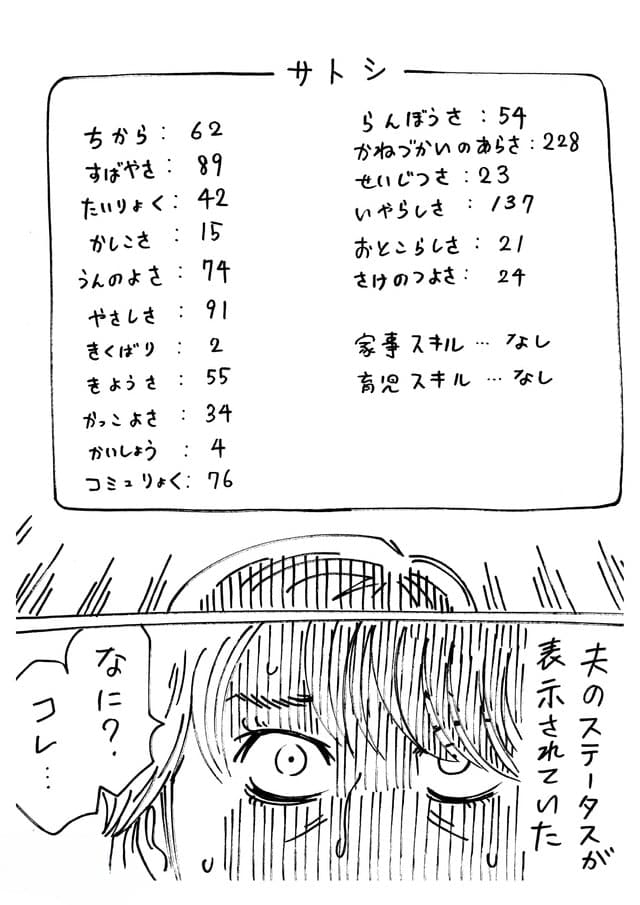 サトシ
ちから： 62
すばやさ： 89
たいりょく： 42
かしこさ ： 15
うんのよさ： 74
やさしさ ： 91
きくばり ： 2
きようさ ： 55
かっこよさ ： 34
かいしょう ： 4
コミュりょく： 76
らんぼうさ ： 54
かねづかいのあらさ：228
せいじつさ：23
いやらしさ ： 137
おとこらしさ： 21
さけのつよさ： 24
家事スキル … なし
育児スキル … なし
夫のステータスが
表示されていた
なに？
コレ…